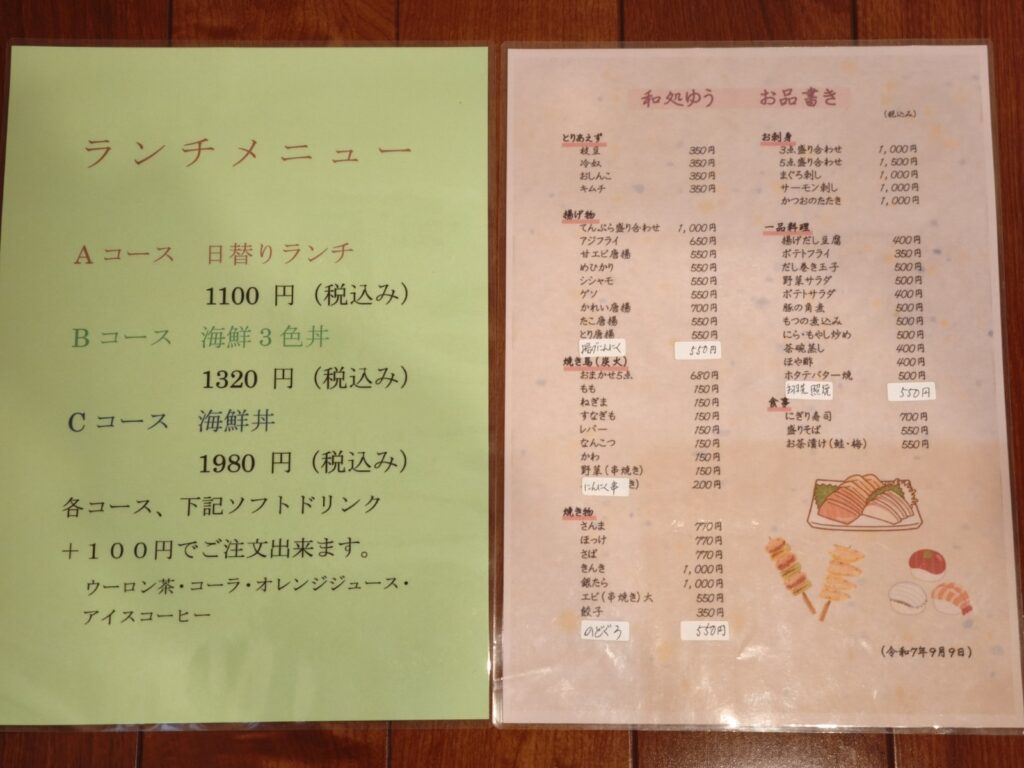 ランチメニュー
Aコース 日替りランチ
1100 円(税込み)
Bコース 海鮮3色丼
1320 円(税込み)
Cコース 海鮮丼
1980 円(税込み)
各コース、下記ソフトドリンク
+100円でご注文出来ます。
ウーロン茶・コーラ・オレンジジュース・
アイスコーヒー
和処ゆう お品書き
(税込み)
とりあえず
枝豆 350円
冷奴 350円
おしんこ 350円
キムチ 350円
揚げ物
てんぷら盛り合わせ 1,000円
アジフライ 650円
甘エビ唐揚 550円
めひかり 550円
シシャモ 550円
ゲソ 550円
かれい唐揚 700円
たこ唐揚 550円
とり唐揚 550円
揚げにんにく 550円
焼き鳥(炭火)
おまかせ5点 680円
もも 150円
ねぎま 150円
すなぎも 150円
レバー 150円
なんこつ 150円
かわ 150円
野菜(串焼き) 150円
にんにく串 き) 200円
焼き物
さんま 770円
ほっけ 770円
さば 770円
きんき 1,000円
銀たら 1,000円
エビ(串焼き)大 550円
餃子 350円
のどぐろ 550円
お刺身
3点盛り合わせ 1,000円
5点盛り合わせ 1,500円
まぐろ刺し 1,000円
サーモン刺し 1,000円
かつおのたたき 1,000円
一品料理
揚げだし豆腐 400円
ポテトフライ 350円
だし巻き玉子 500円
野菜サラダ 500円
ポテトサラダ 400円
豚の角煮 500円
もつの煮込み 500円
にら・もやし炒め 500円
茶碗蒸し 400円
ほや酢 400円
ホタテバター焼 500円
照焼 550円
食事
にぎり寿司 700円
盛りそば 550円
お茶漬け(鮭・梅) 550円
(令和7年9月9日)